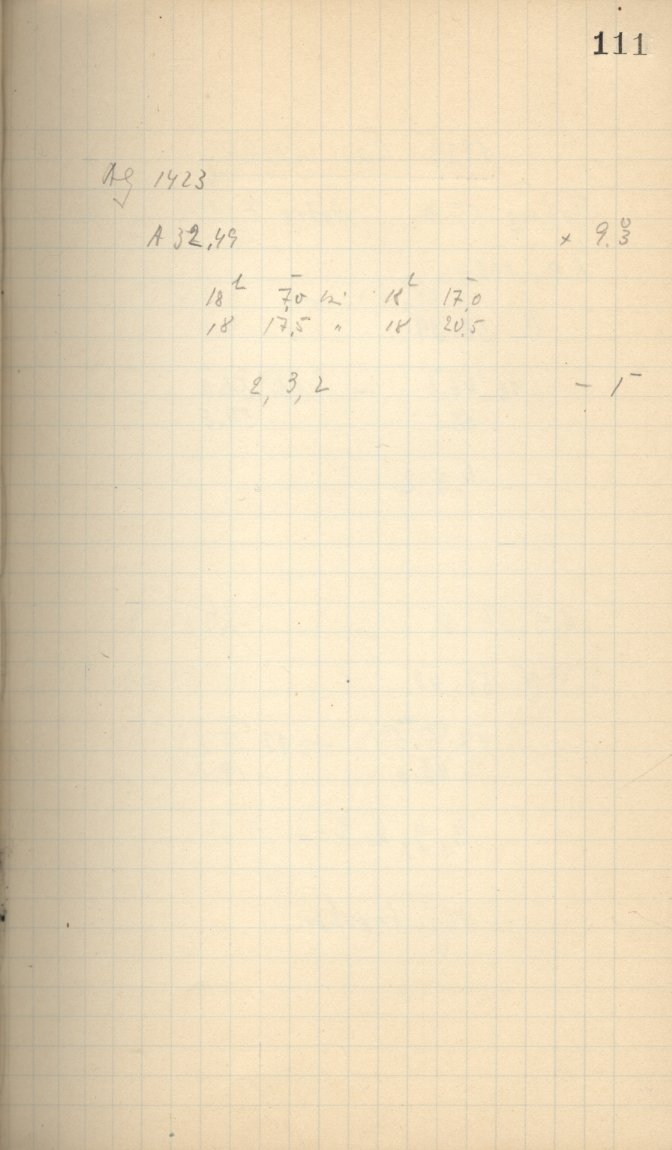 111
Ag 1423
A 32,49 × 9.3 0
18 h 7,0 bis 18 h 17,0
18 17,5 " 18 20,5
2, 3, 2 – 1